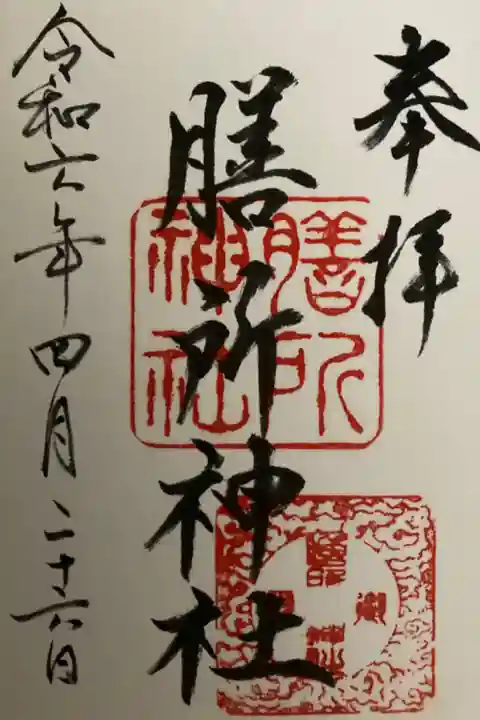 奉拝
膳所神社
膳所
神社
令和六年四月二十六日